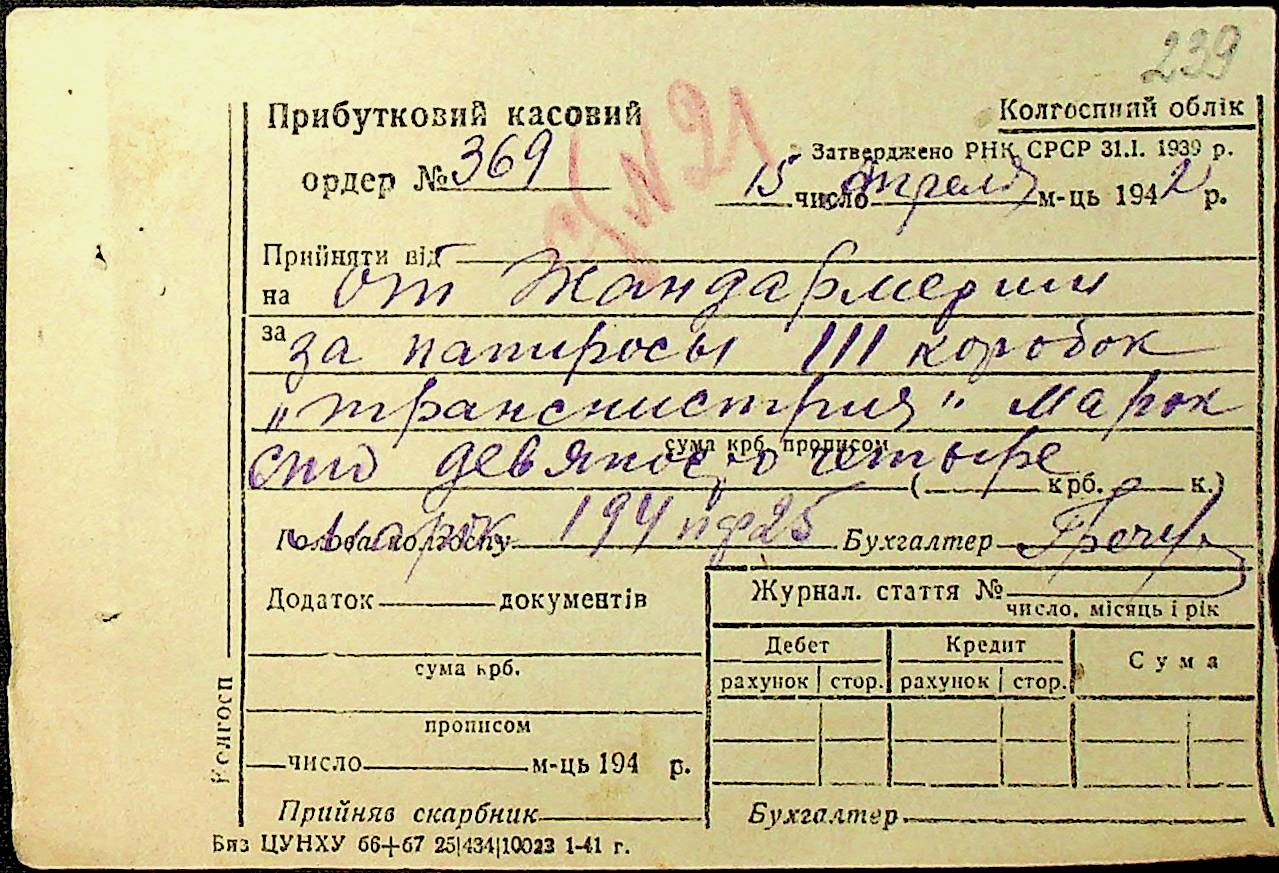 239
Прибутковий касовий
Колгоспний облік
ордер № 369
№ 21
Затверджено РНК СРСР 31.I. 1939 р.
15 число апреля м-ць 1942 р.
Прийняти від
на от Жандармерии
за за папиросы 111 коробок
„транснистрия“ марок
сума крб. прописом
сто девяносто четыре
( крб. к.)
Голова колгоспу марок 194 пф 25 Бухгалтер
Додаток документів
Журнал. стаття №
число, місяць і рік
Дебет Кредит Сума
рахунок стор. рахунок стор.
сума крб.
прописом
число м-ць 194 р.
Прийняв скарбник
Бухгалтер
Колгосп
Биз ЦУНХУ 66+67 25|434|10023 1-41 г.